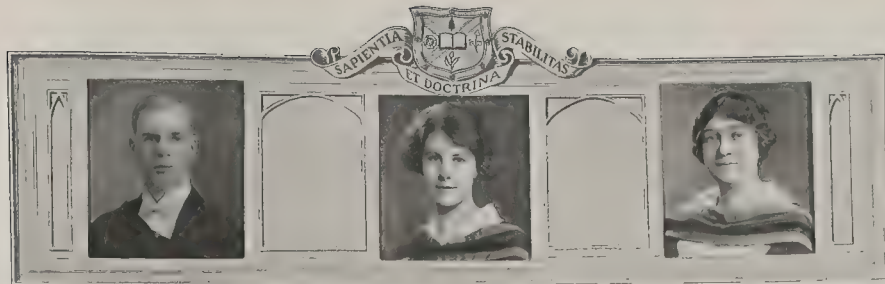 SAPIENTIA ET DOCTRINA STABILITAS